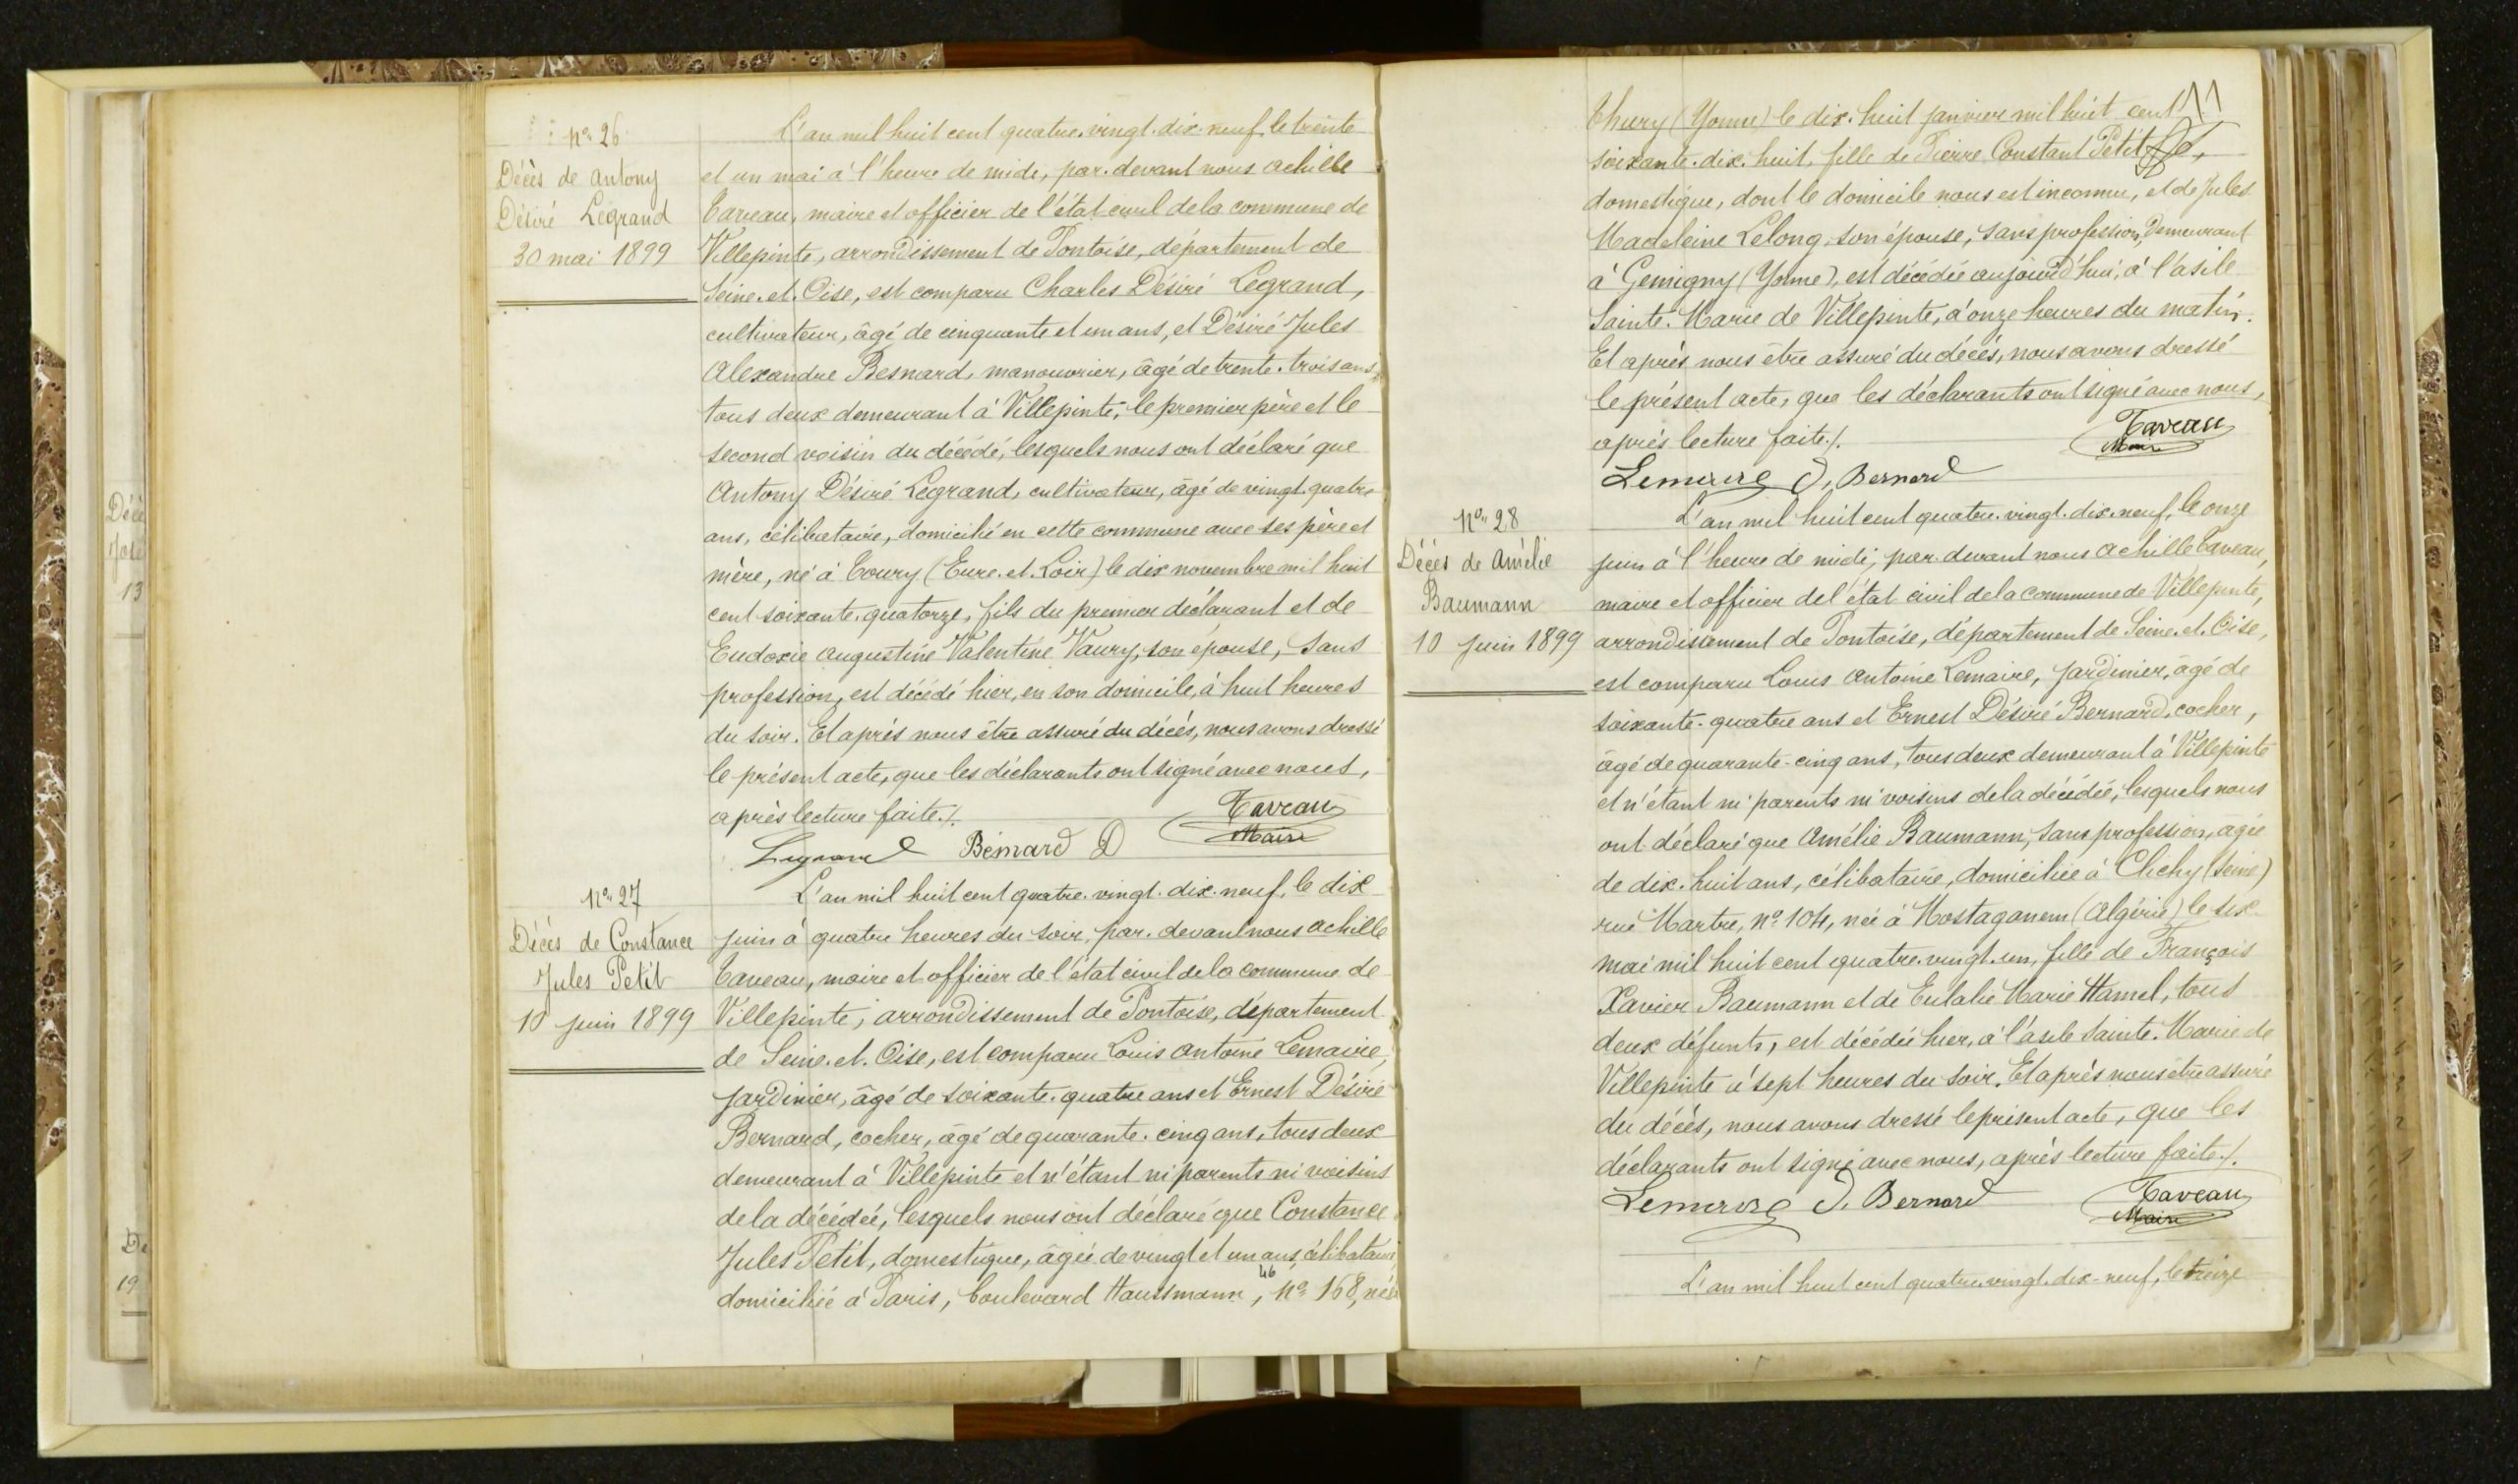 Nº 26
Décès de Antony
Désiré Legrand
30 mai 1899
L'an mil huit cent quatre-vingt-dix-neuf, le trente
et un mai à l'heure de midi, par-devant nous Achille
Taveau, maire et officier de l'état civil de la commune de
Villepinte, arrondissement de Pontoise, département de
Seine-et-Oise, est comparu Charles Désiré Legrand,
cultivateur, âgé de cinquante et un ans, et Désiré Jules
Alexandre Besnard, manouvrier, âgé de trente-trois ans,
tous deux demeurant à Villepinte, le premier père et le
second voisin du décédé, lesquels nous ont déclaré que
Antony Désiré Legrand, cultivateur, âgé de vingt-quatre
ans, célibataire, domicilié en cette commune avec ses père et
mère, né à Toury (Eure-et-Loir) le dix novembre mil huit
cent soixante-quatorze, fils du premier déclarant et de
Eudoxie Augustine Valentine Vaury, son épouse, sans
profession, est décédé hier, en son domicile, à huit heures
du soir. Et après nous être assuré du décès, nous avons dressé
le présent acte, que les déclarants ont signé avec nous,
après lecture faite ./.
Taveau
Maire
Legrand Besnard D
Nº 27
Décès de Constance
Jules Petit
10 juin 1899
L'an mil huit cent quatre-vingt-dix-neuf, le dix
juin à quatre heures du soir, par-devant nous Achille
Taveau, maire et officier de l'état civil de la commune de
Villepinte, arrondissement de Pontoise, département
de Seine-et-Oise, est comparu Louis Antoine Lemaire,
jardinier, âgé de soixante-quatre ans et Ernest Désiré
Bernard, cocher, âgé de quarante-cinq ans, tous deux
demeurant à Villepinte et n'étant ni parents ni voisins
de la décédée, lesquels nous ont déclaré que Constance
Jules Petit, domestique, âgée de vingt et un ans, célibataire
domiciliée à Paris, boulevard Haussmann, nº 168, née
46
11
Thury (Yonne) le dix-huit janvier mil huit cent
soixante-dix-huit, fille de Pierre Constant Petit,
domestique, dont le domicile nous est inconnu, et de Jules
Madeleine Lelong, son épouse, sans profession, demeurant
à Gemigny (Yonne), est décédée aujourd'hui, à l'asile
Sainte-Marie de Villepinte, à onze heures du matin.
Et après nous être assuré du décès, nous avons dressé
le présent acte, que les déclarants ont signé avec nous,
après lecture faite ./.
Taveau
Maire
Lemaire D. Bernard
Nº 28
Décès de Amélie
Baumann
10 juin 1899
L'an mil huit cent quatre-vingt-dix-neuf, le onze
juin à l'heure de midi, par-devant nous Achille Taveau,
maire et officier de l'état civil de la commune de Villepinte,
arrondissement de Pontoise, département de Seine-et-Oise,
est comparu Louis Antoine Lemaire, jardinier, âgé de
soixante-quatre ans et Ernest Désiré Bernard, cocher,
âgé de quarante-cinq ans, tous deux demeurant à Villepinte
et n'étant ni parents ni voisins de la décédée, lesquels nous
ont déclaré que Amélie Baumann, sans profession, âgée
de dix-huit ans, célibataire, domiciliée à Clichy (Seine)
rue Martre, nº 104, née à Mostaganem (Algérie) le six
mai mil huit cent quatre-vingt-un, fille de François
Xavier Baumann et de Eulalie Marie Hamel, tous
deux défunts, est décédée hier, à l'asile Sainte-Marie de
Villepinte à sept heures du soir. Et après nous être assuré
du décès, nous avons dressé le présent acte, que les
déclarants ont signé avec nous, après lecture faite ./.
Lemaire D. Bernard Taveau
Maire
L'an mil huit cent quatre-vingt-dix-neuf, le treize